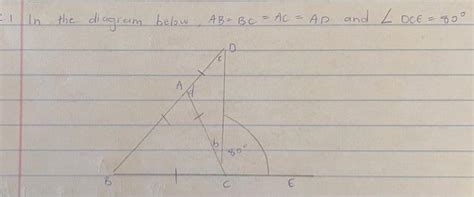 1 In the diagram below, AB = BC = AC = AD and ∠ DCE = 80°
D
c
A
d
b
80°
B
C
E